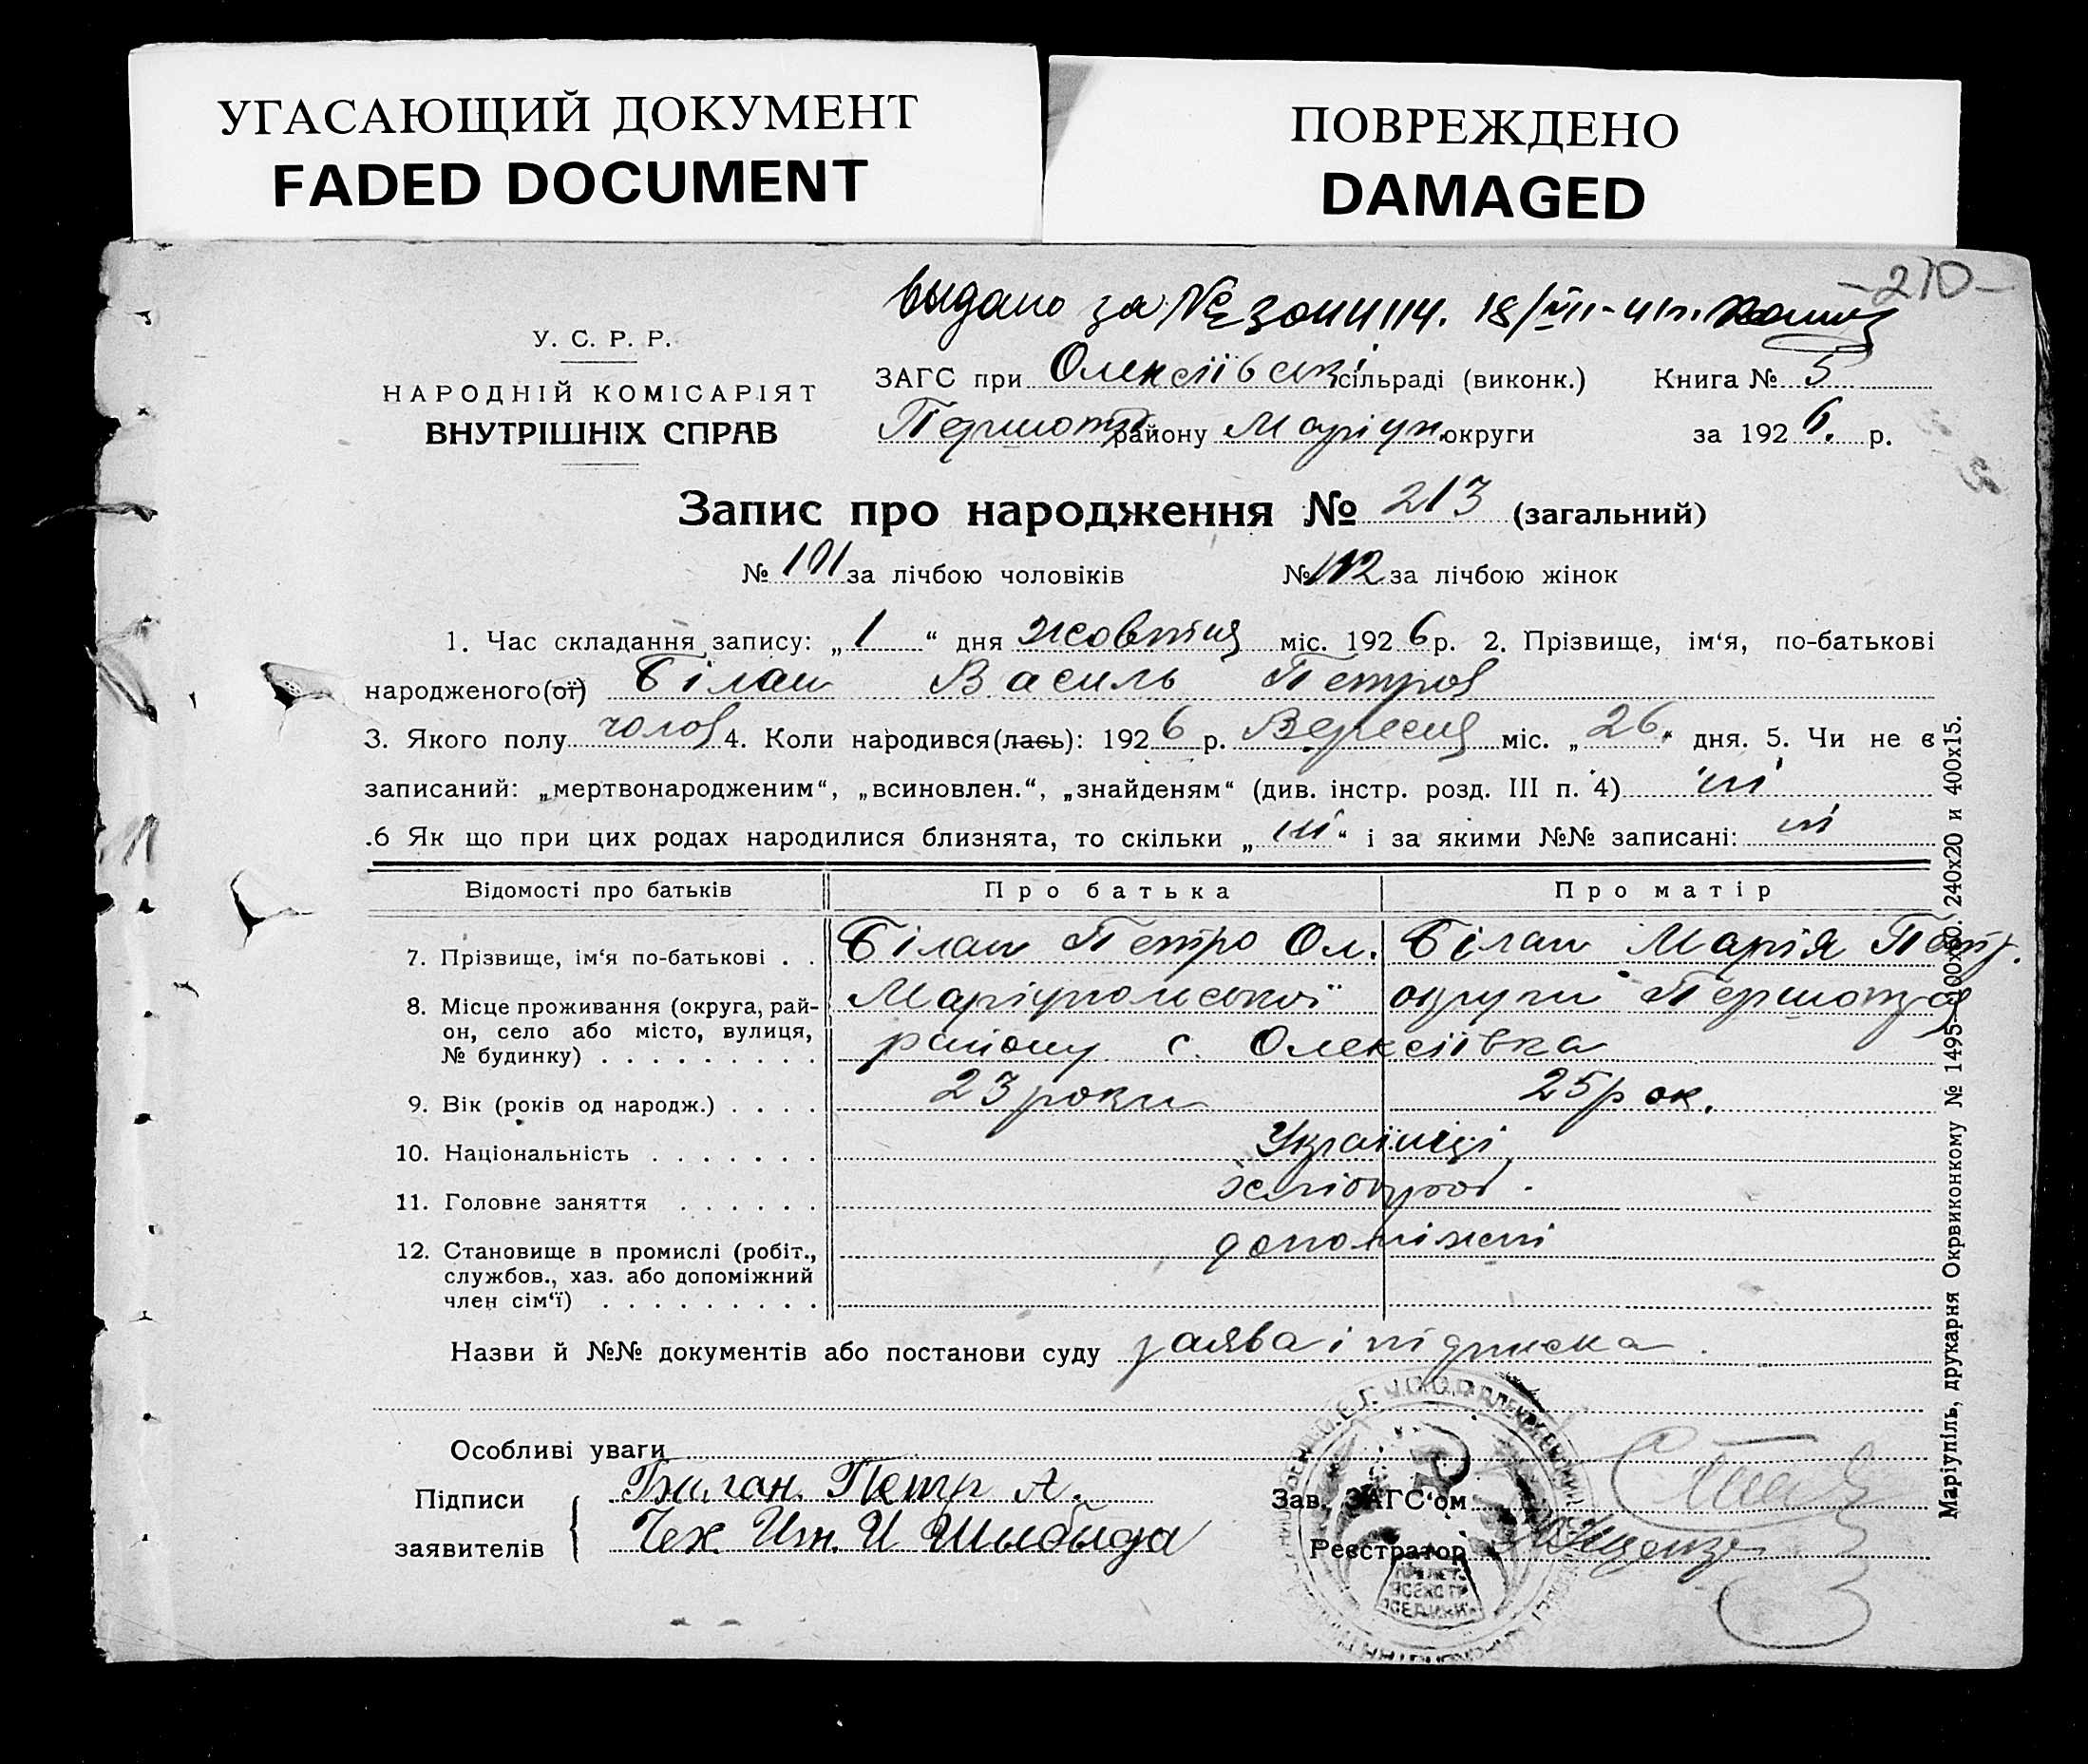 УГАСАЮЩИЙ ДОКУМЕНТ
FADED DOCUMENT
ПОВРЕЖДЕНО
DAMAGED
-210-
выдано за № 18/VIII-41г.
У. С. Р. Р.
НАРОДНІЙ КОМІСАРІЯТ
ВНУТРІШНІХ СПРАВ
ЗАГС при Олексіївській сільраді (виконк.) Книга № 5
Першотр району Маріуп округи за 1926. р.
Запис про народження № 213 (загальний)
№ 101 за лічбою чоловіків № 112 за лічбою жінок
1. Час складання запису: „1“ дня жовтня міс. 1926 р. 2. Прізвище, ім‘я, по-батькові
народженого(ої) Білан Василь Петров
3. Якого полу чолов 4. Коли народився(лась): 1926 р. Вересня міс. „26“ дня. 5. Чи не є
записаний: „мертвонародженим“, „всиновлен.“, „знайденям“ (див. інстр. розд. III п. 4) ні
.6 Як що при цих родах народилися близнята, то скільки „ні“ і за якими №№ записані: ні
Відомості про батьків Про батька Про матір
7. Прізвище, ім‘я по-батькові . . Білан Петро Ол. Білан Марія Петр.
8. Місце проживання (округа, рай-
он, село або місто, вулиця,
№ будинку) . . . . . . . . .
Маріупольської округи Першотр
району с. Олексіївка
9. Вік (років од народж.) . . . . 23 роки 25 рок.
10. Національність . . . . . . . Українці
11. Головне заняття . . . . . . хлібороб.
12. Становище в промислі (робіт.,
службов., хаз. або допоміжний
член сім‘ї) . . . . . . . . .
допоміжні
Назви й №№ документів або постанови суду заява і підписка
Особливі уваги
Підписи
заявителів
Билан Петр А.
Чех Ин. И
Зав. ЗАГС‘ом
Реєстратор
Маріупіль, друкарня Окрвиконкому № 1495— 240х20 и 400х15.